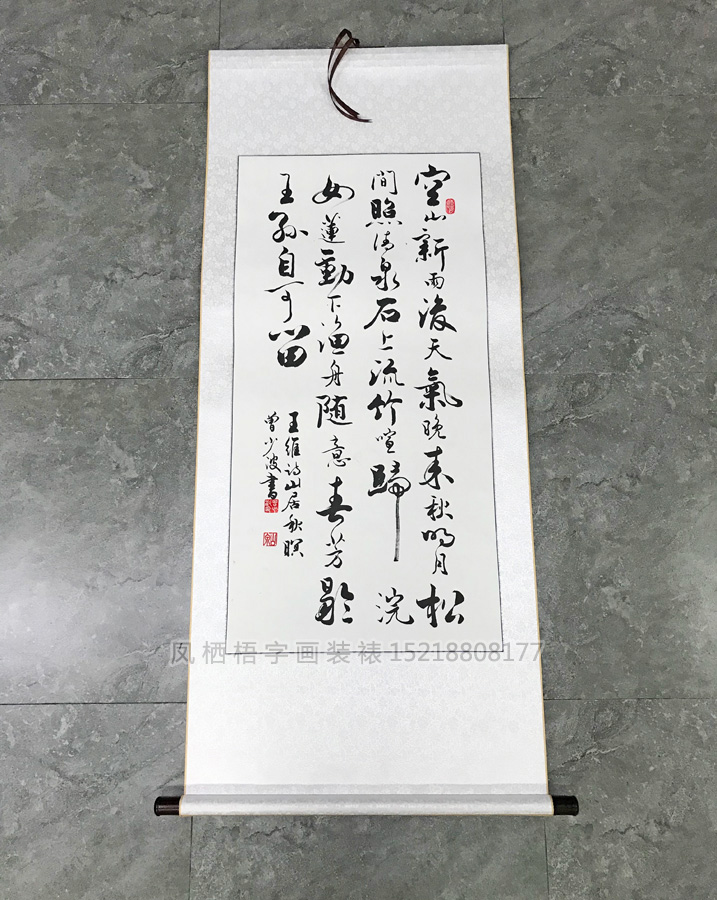 空山新雨後天氣晚来秋明月松
間照清泉石上流竹喧歸浣
女蓮動下渔舟随意春芳歇
王孫自可留
王維诗山居秋暝
曾少波書
凤栖梧字画装裱15218808177